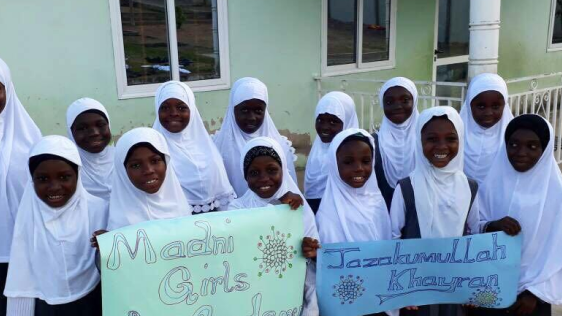 Madni
Girls
Jazakumullah
Khayran